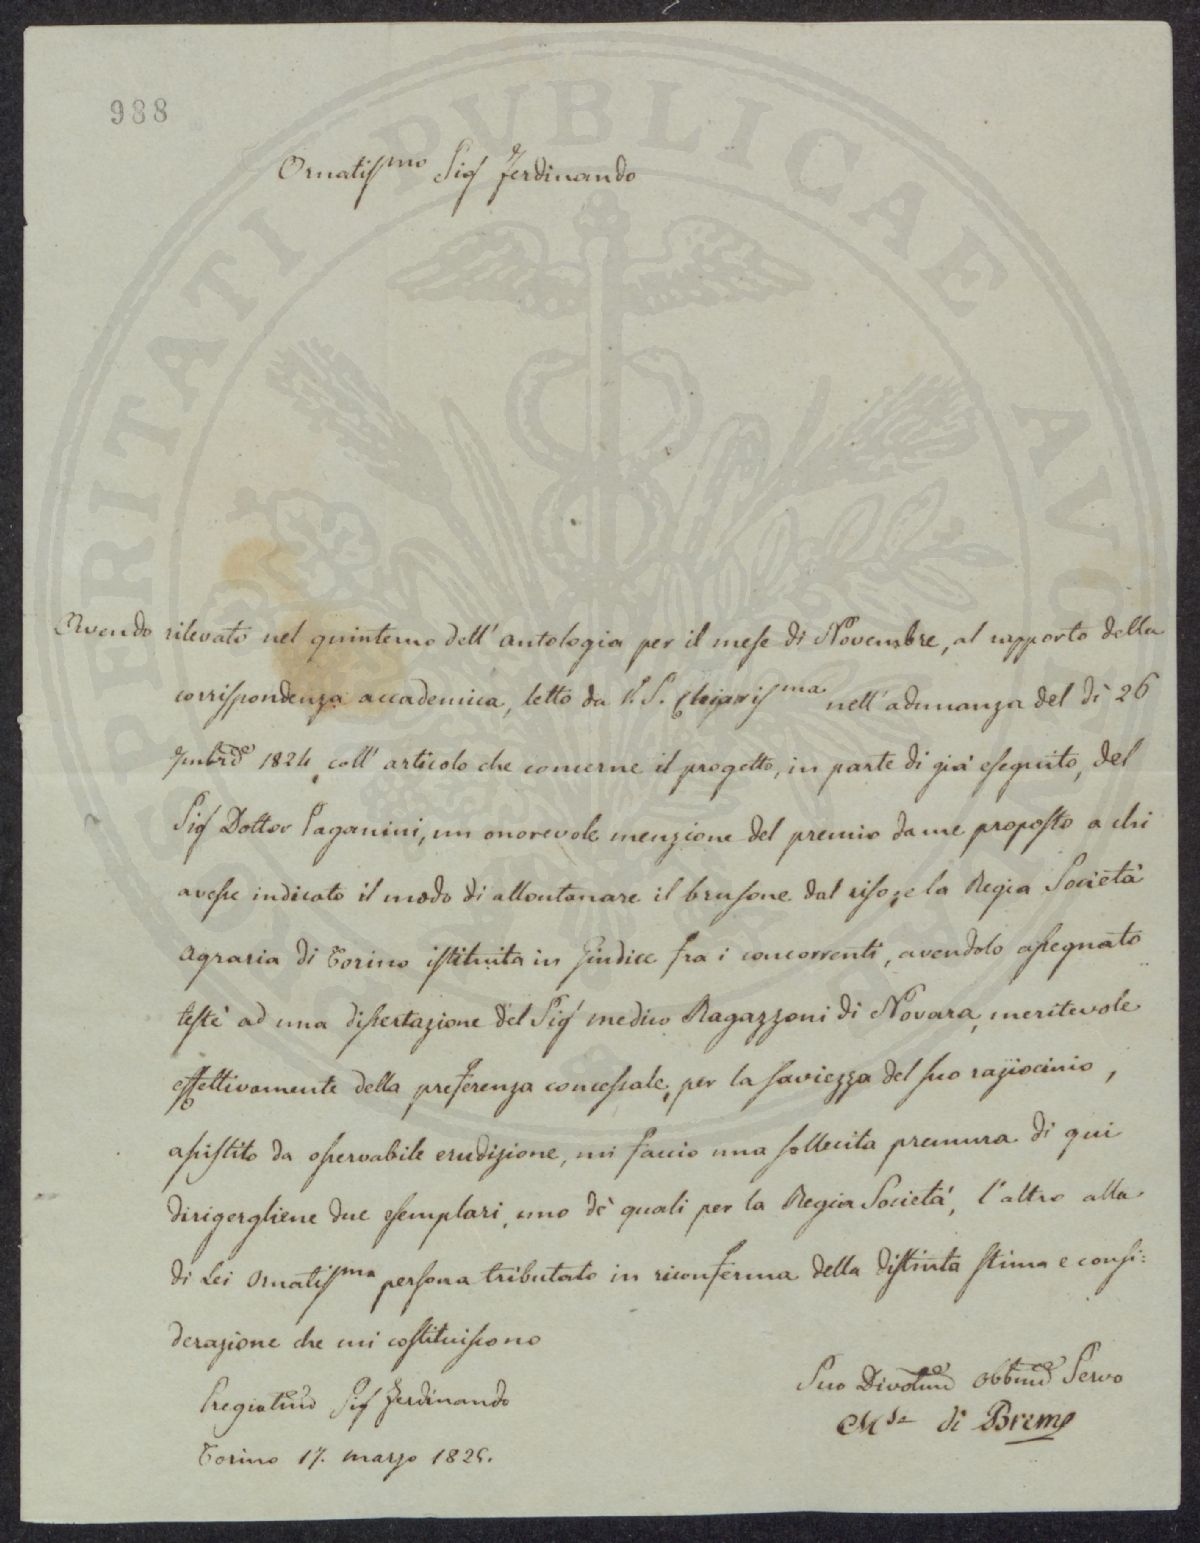 988
PROSPERITATI PUBLICAE AUGENDAE
Ornatissmo Sigr Ferdinando
Avendo rilevato nel quinterno dell' antologia per il mese di Novembre, al rapporto della
corrispondenza accademica, letto da V. S. Chiarisma nell' adunanza del dì 26
7mbre 1824, coll' articolo che concerne il progetto, in parte di già eseguito, del
Sigr Dottor Paganini, un onorevole menzione del premio da me proposto a chi
avesse indicato il modo di allontanare il brusone dal riso, e la Regia Società
Agraria di Torino istituita in Giudice fra i concorrenti, avendolo assegnato
testè ad una dissertazione del Sigr medico Ragazzoni di Novara, meritevole
effettivamente della preferenza concessale, per la saviezza del suo raziocinio,
assistito da osservabile erudizione, mi faccio una sollecita premura di qui
dirigergliene due esemplari, uno dè quali per la Regia Società, l'altro alla
di Lei Ornatisma persona tributato in riconferma della distinta stima e consi=
derazione che mi costituiscono
Pregiatmo Sigr Ferdinando
Torino 17. marzo 1825.
Suo Divotmo Obbmo Servo
Mse di Breme